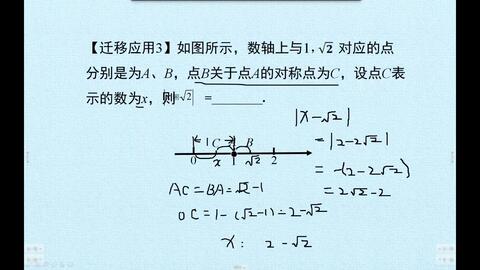 【迁移应用3】如图所示，数轴上与1，√2 对应的点
分别是为A、B，点B关于点A的对称点为C，设点C表
示的数为x，则 |x-√2| =________.
|x-√2|
= |2-2√2|
= -(2-2√2)
= 2√2-2
1 C B
0 x √2 2
AC=BA=√2-1
OC=1-(√2-1)=2-√2
x: 2-√2